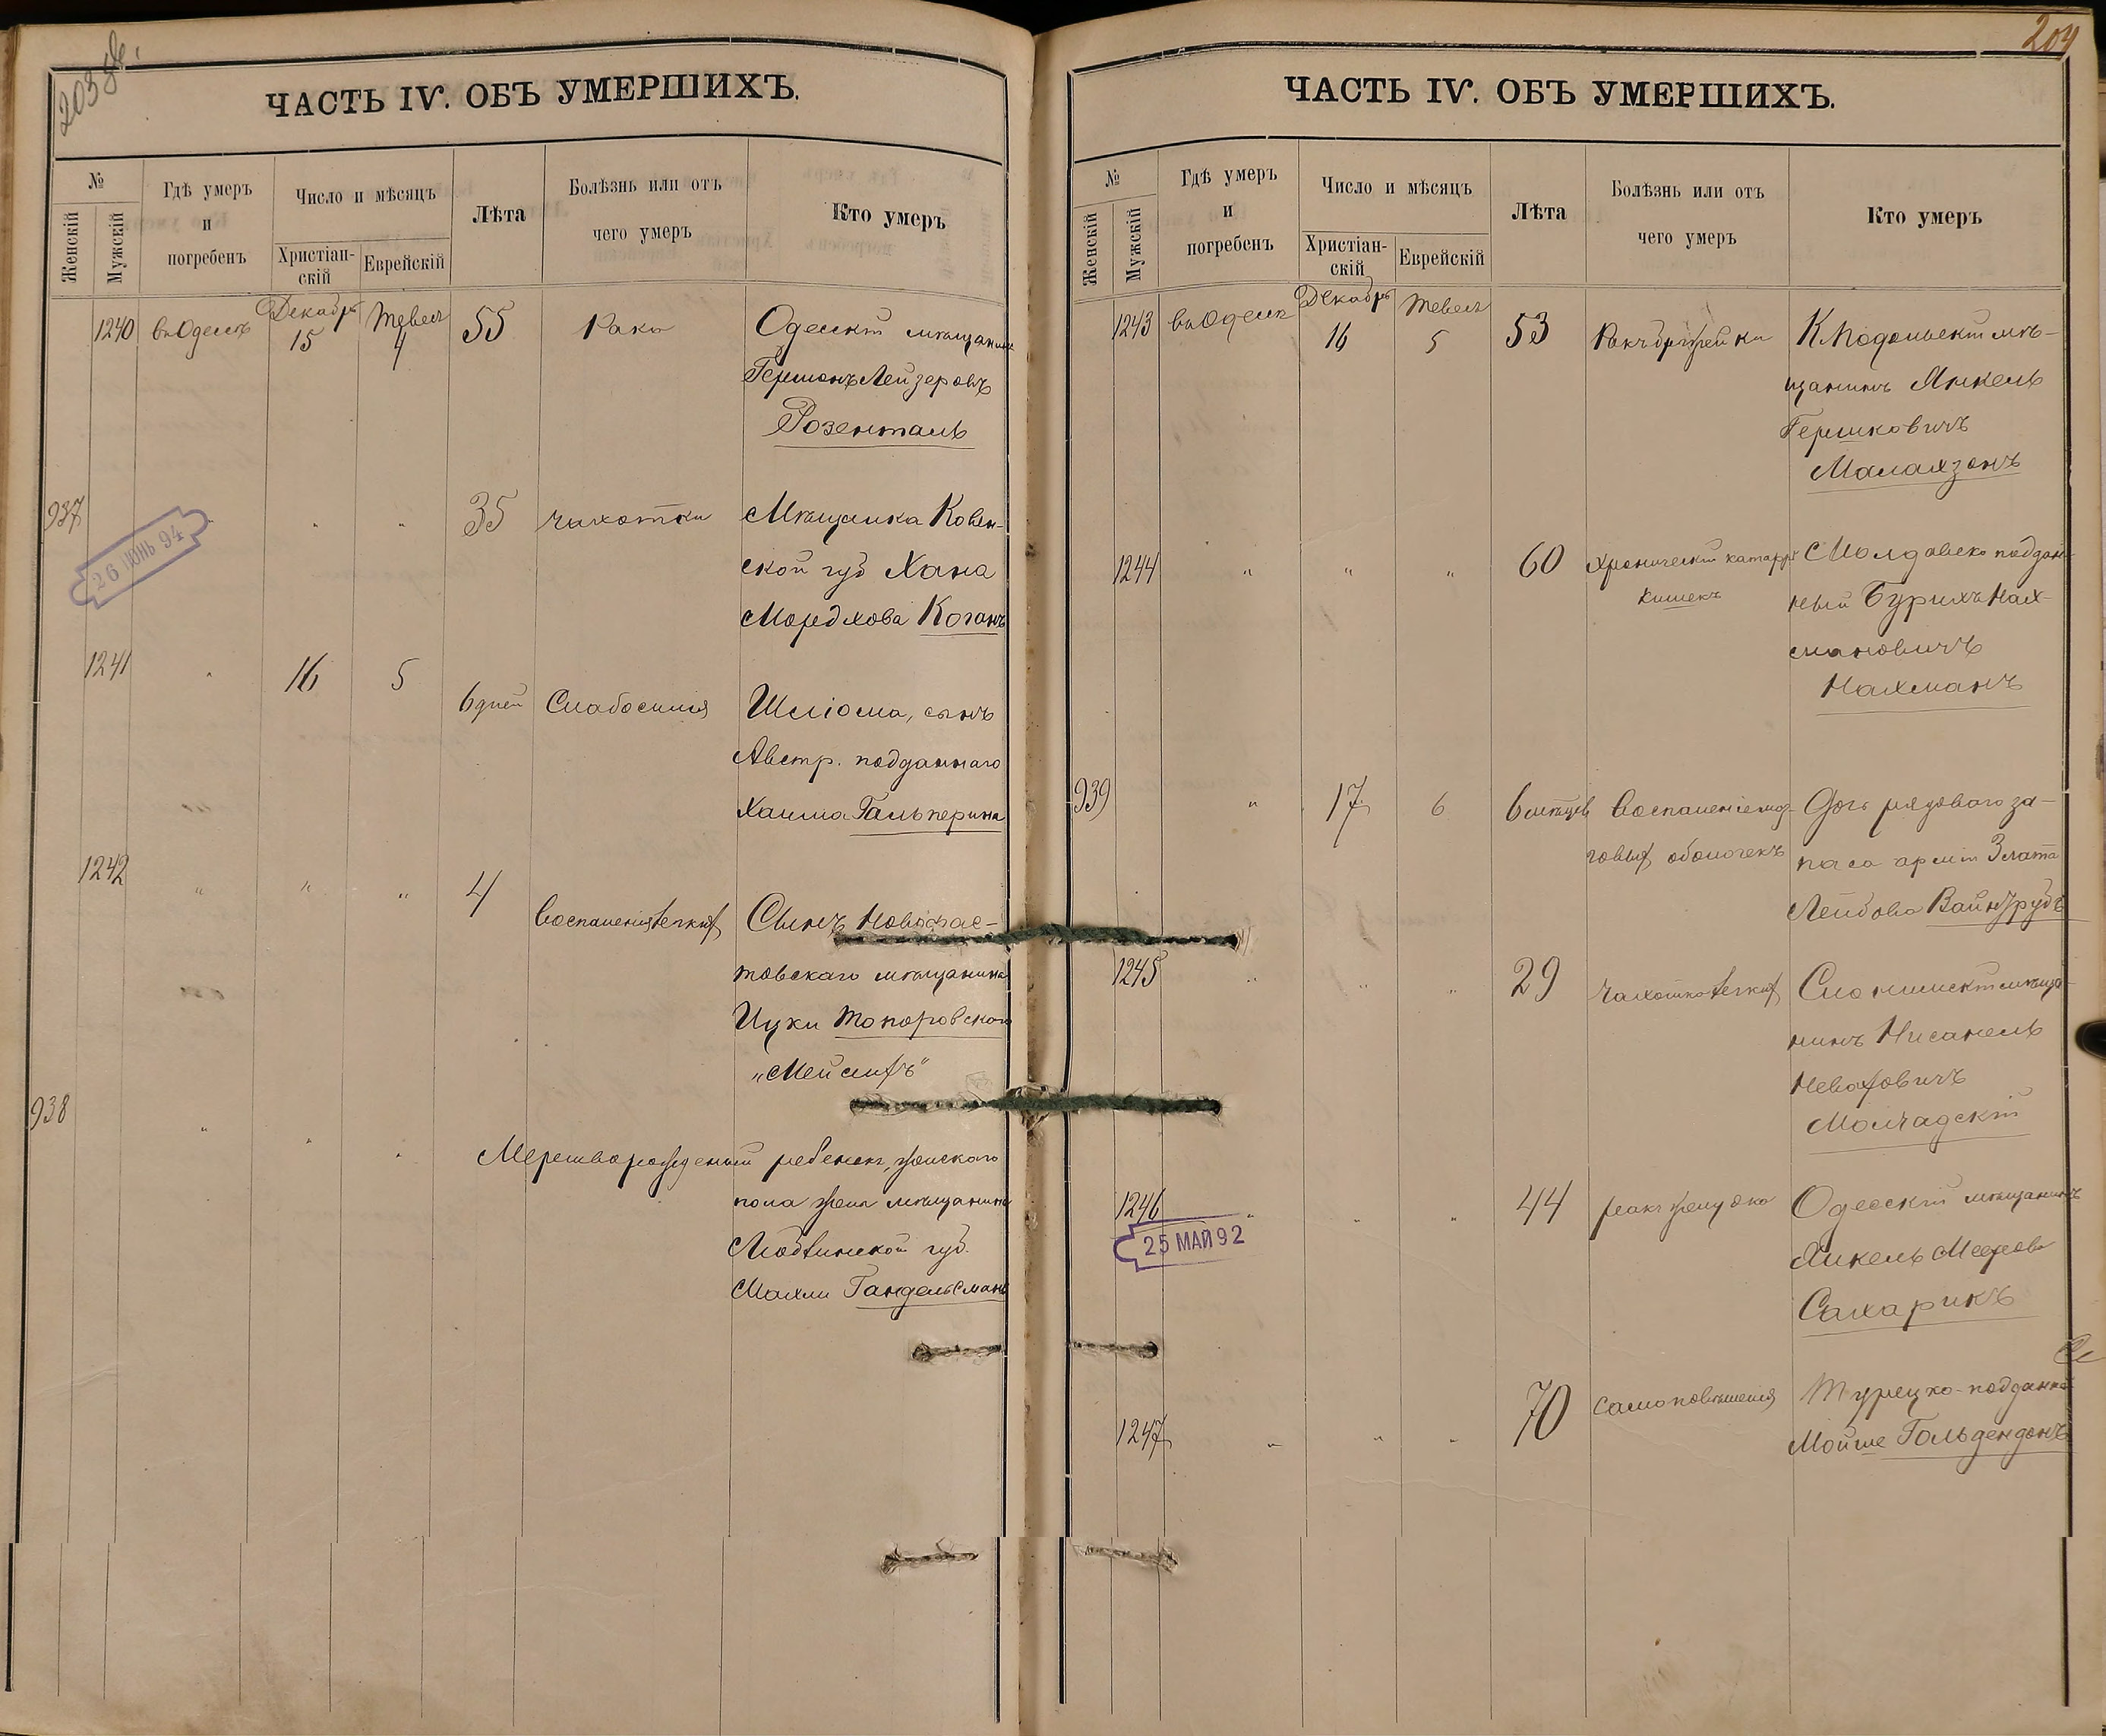 203 об.
ЧАСТЬ IV. ОБЪ УМЕРШИХЪ.
№
Женскій
Мужскій
Гдѣ умеръ
и
погребенъ
Число и мѣсяцъ
Христіан-
скій
Еврейскій
Лѣта
Болѣзнь или отъ
чего умеръ
Кто умеръ
1240 въ Одессѣ Декабрь 15 Тевесъ 4 55 Рака Одесскій мѣщанинъ
Гершонъ Лейзеровъ
Розенталь
937 " " " 35 чахотки Мѣщанка Ковен-
ской губ Хана
Мордхова Коганъ
26 ІЮНЬ 94
1241 " 16 5 6 дней Слабосилія Шліома, сынъ
Австр. подданнаго
Хаима Гальперина
1242 " " " 4 Воспаленія легкихъ Сынъ Новофас-
товскаго мѣщанина
Ицки Топоровскаго
„Мейлихъ"
938 " " " Мертворожденный ребенокъ, женскаго
пола жены мѣщанина
Люблинской губ.
Махли Гандельсманъ
204
ЧАСТЬ IV. ОБЪ УМЕРШИХЪ.
№
Женскій
Мужскій
Гдѣ умеръ
и
погребенъ
Число и мѣсяцъ
Христіан-
скій
Еврейскій
Лѣта
Болѣзнь или отъ
чего умеръ
Кто умеръ
1243 въ Одессѣ Декабрь 16 Тевесъ 5 53 Ракъ К Подольскій мѣ-
щанинъ Янкель
Гершковичъ
Малахзонъ
1244 " " " 60 Хроническій катарръ Молдавско поддан-
кишекъ ный Бурихъ Нах-
мановичъ
Нахманъ
939 " 17 6 6 мѣсцевъ Воспаленіе моз- Дочь рядоваго за-
говыхъ оболочекъ паса арміи Злата
Лейбова Вайнтрубъ
1245 " " " 29 чахотка легкихъ Слонимскій мѣща-
нинъ Нисанель
Неваховичъ
Молчадскій
1246 " " " 44 ракъ желудка Одесскій мѣщанинъ
25 МАЙ 92
Янкель Меерова
Сахарикъ
1247 " " " 70 Самоповѣшенія Турецко-подданный
Мойше Гольдендонъ